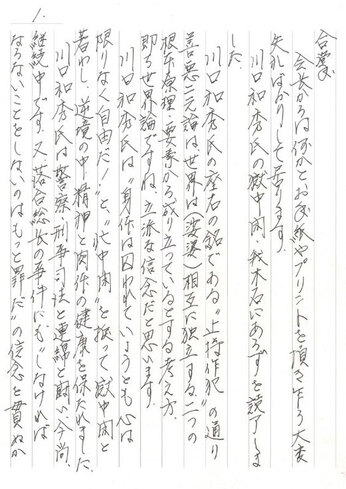 1.
合掌
会長からは何かとお手紙やプリントを頂き乍ら大変
失礼ばかりして居ります。
川口和秀氏の獄中閑・我木石にあらずを読了しま
した。
川口和秀氏の座右の銘である"止持作犯"の通り
善悪二元論は世界は(娑婆)相互に独立する二つの
根本原理・要素から成り立っているとする考え方、
即ち世界論ですね。立派な信念だと思います。
川口和秀氏は"身体は囚われていようとも心は
限りなく自由だ!"と"忙中閑"を捩って獄中閑と
著わし、逆境の中、精神と肉体の健康を保たれました。
川口和秀氏は警察・刑事司法と連綿と闘い今尚、
継続中です。又落合総長の事件にも"しなければ
ならないことをしないのはもっと罪だ"の信念を貫ぬか